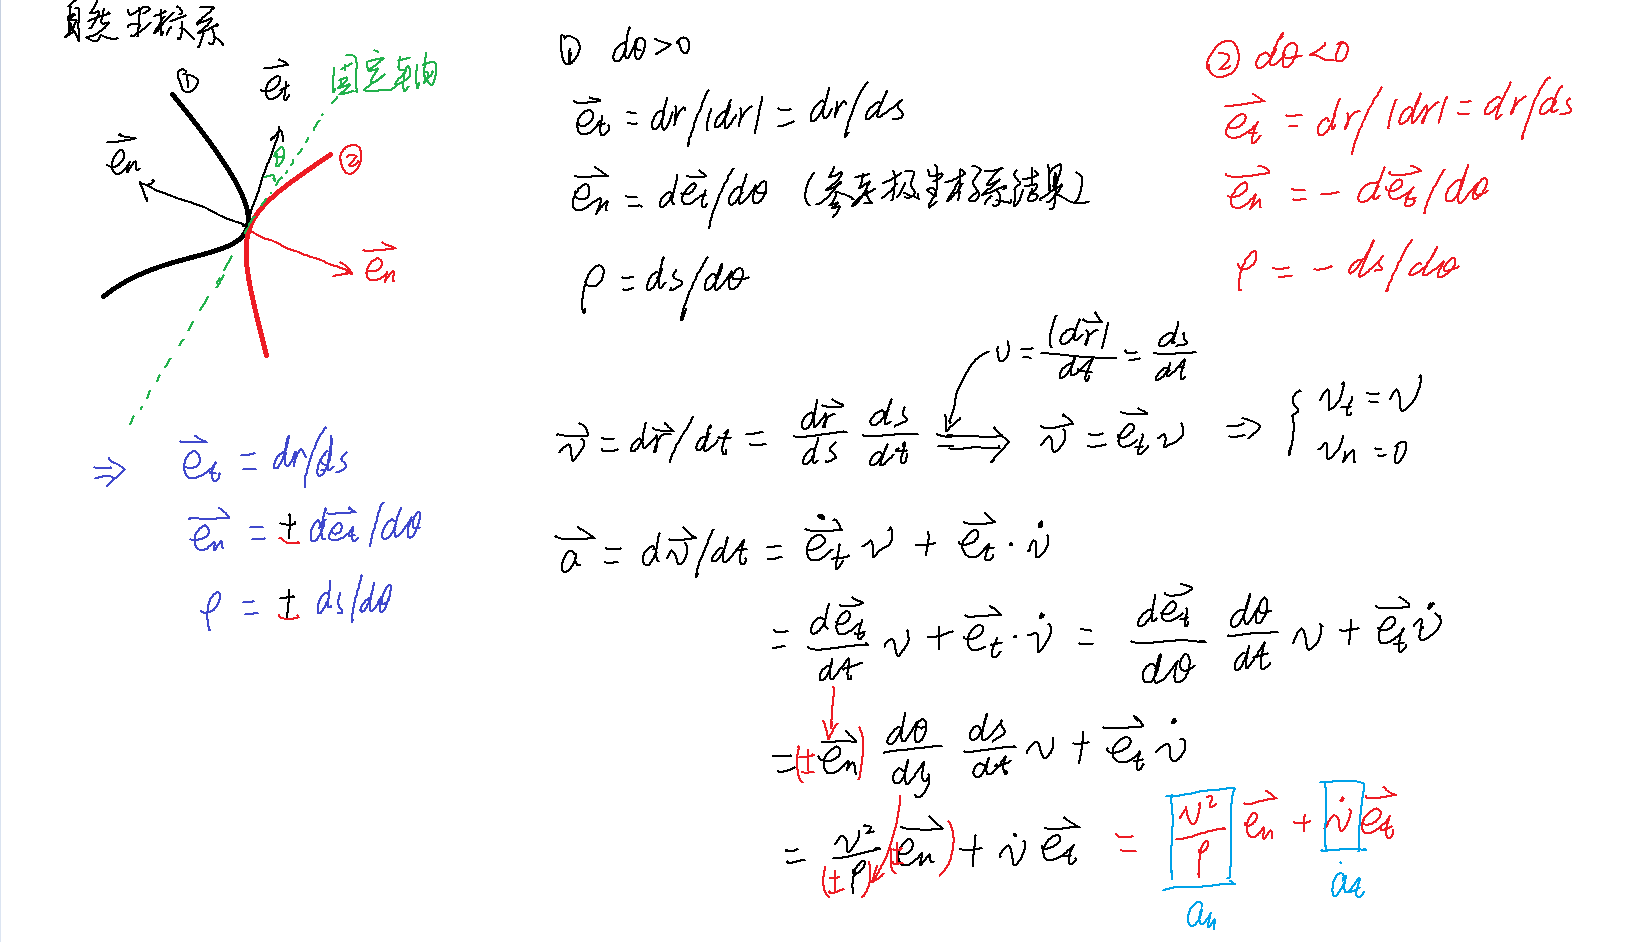 自然坐标系
①
e⃗t
固定轴向
e⃗n
θ
②
e⃗n
⇒ e⃗t = dr/ds
e⃗n = ± de⃗t/dθ
ρ = ± ds/dθ
① dθ>0
e⃗t = dr/|dr| = dr/ds
e⃗n = de⃗t/dθ (参考极坐标系结果)
ρ = ds/dθ
② dθ<0
e⃗t = dr/|dr| = dr/ds
e⃗n = - de⃗t/dθ
ρ = - ds/dθ
v = |dr⃗|/dt = ds/dt
v⃗ = dr⃗/dt = dr⃗/ds ds/dt ⇒ v⃗ = e⃗t v ⇒ { vt = v
vn = 0
a⃗ = dv⃗/dt = ė⃗t v + e⃗t · v̇
= de⃗t/dt v + e⃗t · v̇ = de⃗t/dθ dθ/dt v + e⃗t v̇
= (± e⃗n) dθ/ds ds/dt v + e⃗t v̇
= v²/(±ρ) (± e⃗n) + v̇ e⃗t = v²/ρ e⃗n + v̇ e⃗t
an at